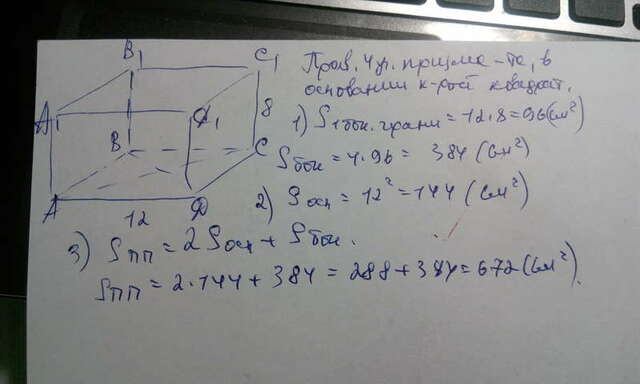 B₁ C₁
A₁ D₁
B C 8
A 12 D
Прав. 4уг. призма – та, в
основании к-рой квадрат.
1) S1бок. грани = 12·8 = 96 (см²)
Sбок = 4·96 = 384 (см²)
2) Sосн = 12² = 144 (см²)
3) Sпп = 2Sосн + Sбок.
Sпп = 2·144 + 384 = 288 + 384 = 672 (см²).